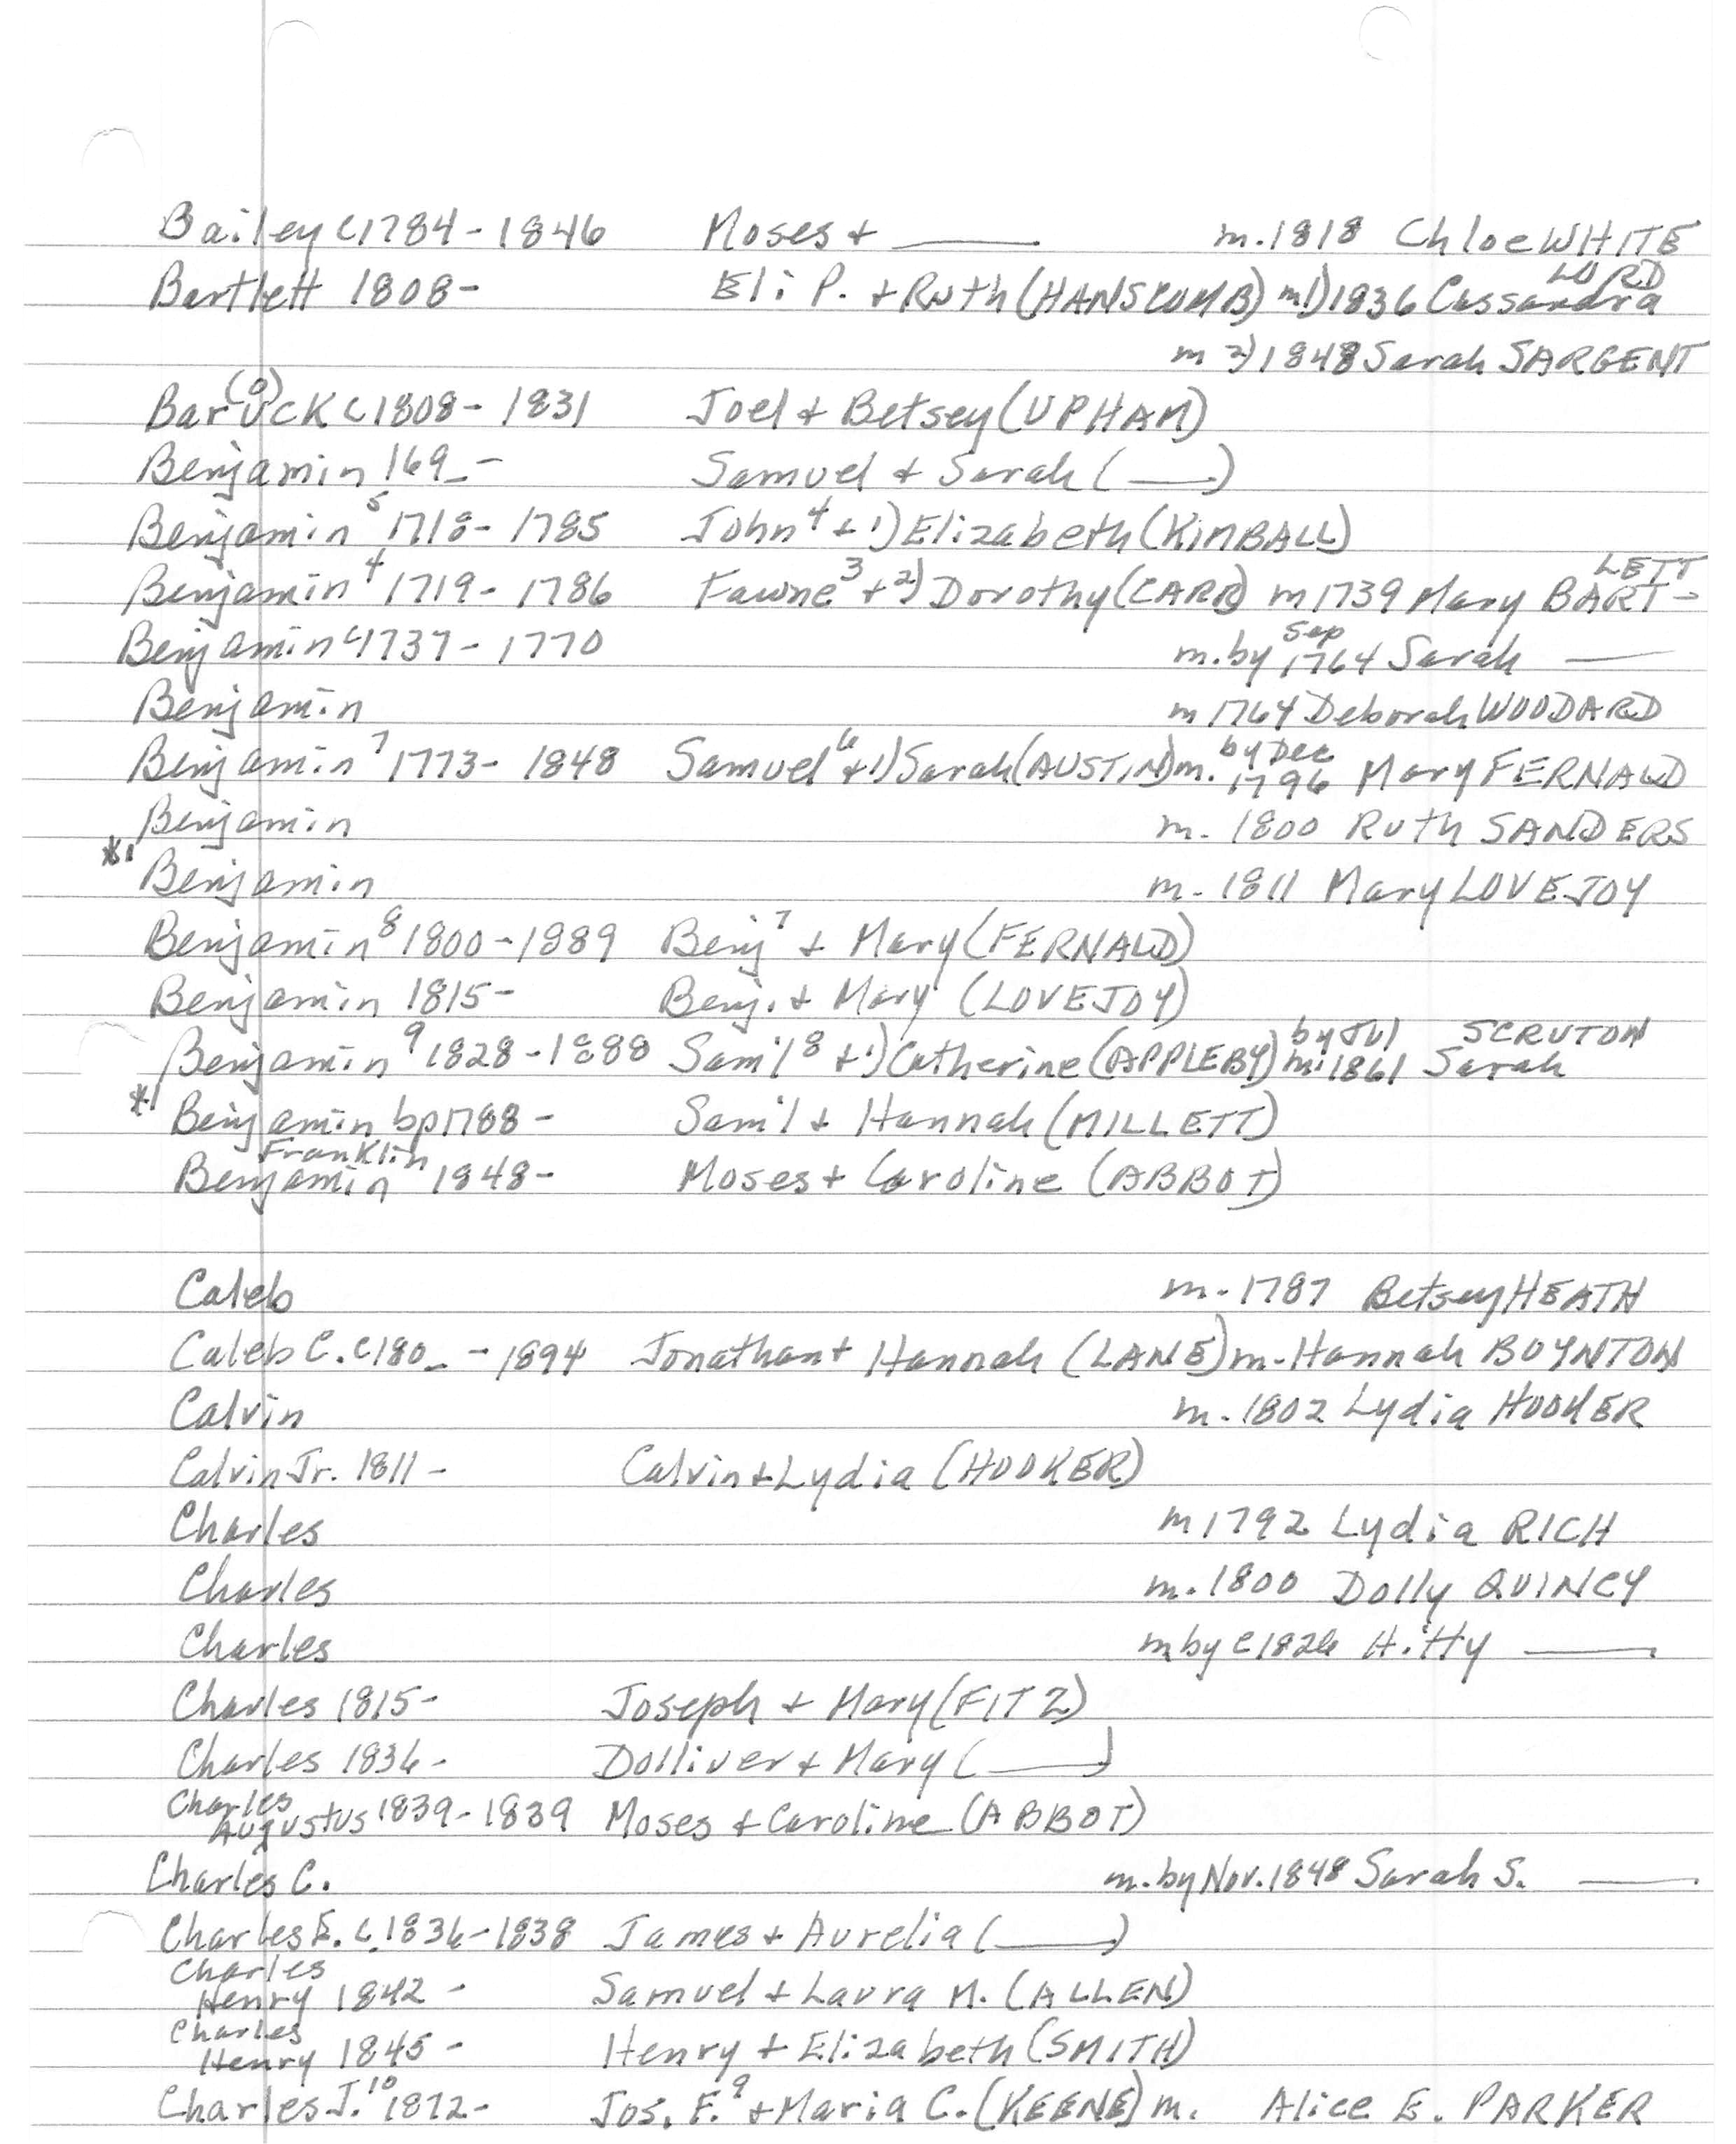 Bailey c1784-1846 Moses + ___ m.1818 Chloe WHITE
Bartlett 1808- Eli P. + Ruth (HANSCOMB) m1) 1836 Cassandra LORD
m 2) 1848 Sarah SARGENT
Bar(o)uck c1808-1831 Joel + Betsey (UPHAM)
Benjamin 169_- Samuel + Sarah (___)
Benjamin⁵ 1718-1785 John⁴ + 1) Elizabeth (KIMBALL)
Benjamin⁴ 1719-1786 Fawne³ + 2) Dorothy (CARR) m1739 Mary BART-LETT
Benjamin c1737-1770 m. by Sep 1764 Sarah ___
Benjamin m 1764 Deborah WOODARD
Benjamin⁷ 1773-1848 Samuel⁶ + 1) Sarah (AUSTIN) m. by Dec 1796 Mary FERNALD
Benjamin m. 1800 Ruth SANDERS
*1 Benjamin m. 1811 Mary LOVEJOY
Benjamin⁸ 1800-1889 Benj⁷ + Mary (FERNALD)
Benjamin 1815- Benj. + Mary (LOVEJOY)
Benjamin⁹ 1828-1888 Sam'l⁸ + 1) Catherine (APPLEBY) m. by Jul 1861 Sarah SCRUTON
*1 Benjamin bp1788- Sam'l + Hannah (MILLETT)
Benjamin Franklin 1848- Moses + Caroline (ABBOT)
Caleb m. 1787 Betsey HEATH
Caleb C. c180_-1894 Jonathan + Hannah (LANE) m. Hannah BOYNTON
Calvin m. 1802 Lydia HOOKER
Calvin Jr. 1811- Calvin + Lydia (HOOKER)
Charles m1792 Lydia RICH
Charles m. 1800 Dolly QUINCY
Charles m by c1826 Hitty ___
Charles 1815- Joseph + Mary (FITZ)
Charles 1836- Dolliver + Mary (___)
Charles Augustus 1839-1839 Moses + Caroline (ABBOT)
Charles C. m. by Nov. 1848 Sarah S. ___
Charles E. c.1836-1838 James + Aurelia (___)
Charles Henry 1842- Samuel + Laura M. (ALLEN)
Charles Henry 1845- Henry + Elizabeth (SMITH)
Charles J.¹⁰ 1872- Jos. F.⁹ + Maria C. (KEENE) m. Alice E. PARKER